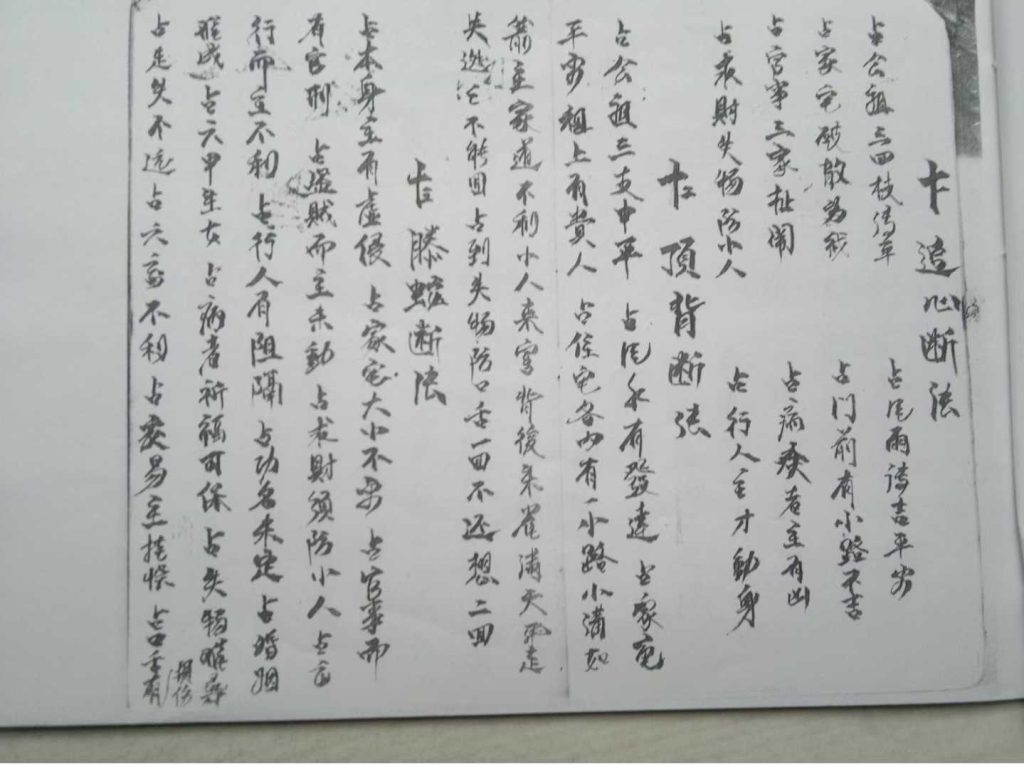 十 追心断法
占公祖三四枝
占風雨請吉平安
占家宅破散為
占門前有小路不吉
占官事三家扯鬧
占病疾者主有凶
占求財失物防小人
占行人主才動身
十二 頂背断法
占公祖三支中平 占風水有發達 占家宅
平安 祖上有貴人 占住宅各內有一小路小溝
主家道不利小人來害背後朱雀滿天飛走
失逃亡不能回占到失物防口舌一回不还想二回
十三 滕蛇断法
占本身主有虛侵 占家宅大小不安 占官事而
有官刑 占盜賊而主未動 占求財須防小人 占言
行而主不利 占行人有阻隔 占功名未定 占婚姻
难成 占六甲生女 占病者祈福可保 占失物难尋
占走失不遠占六畜不利占交易主挂悮 占口舌有損伤